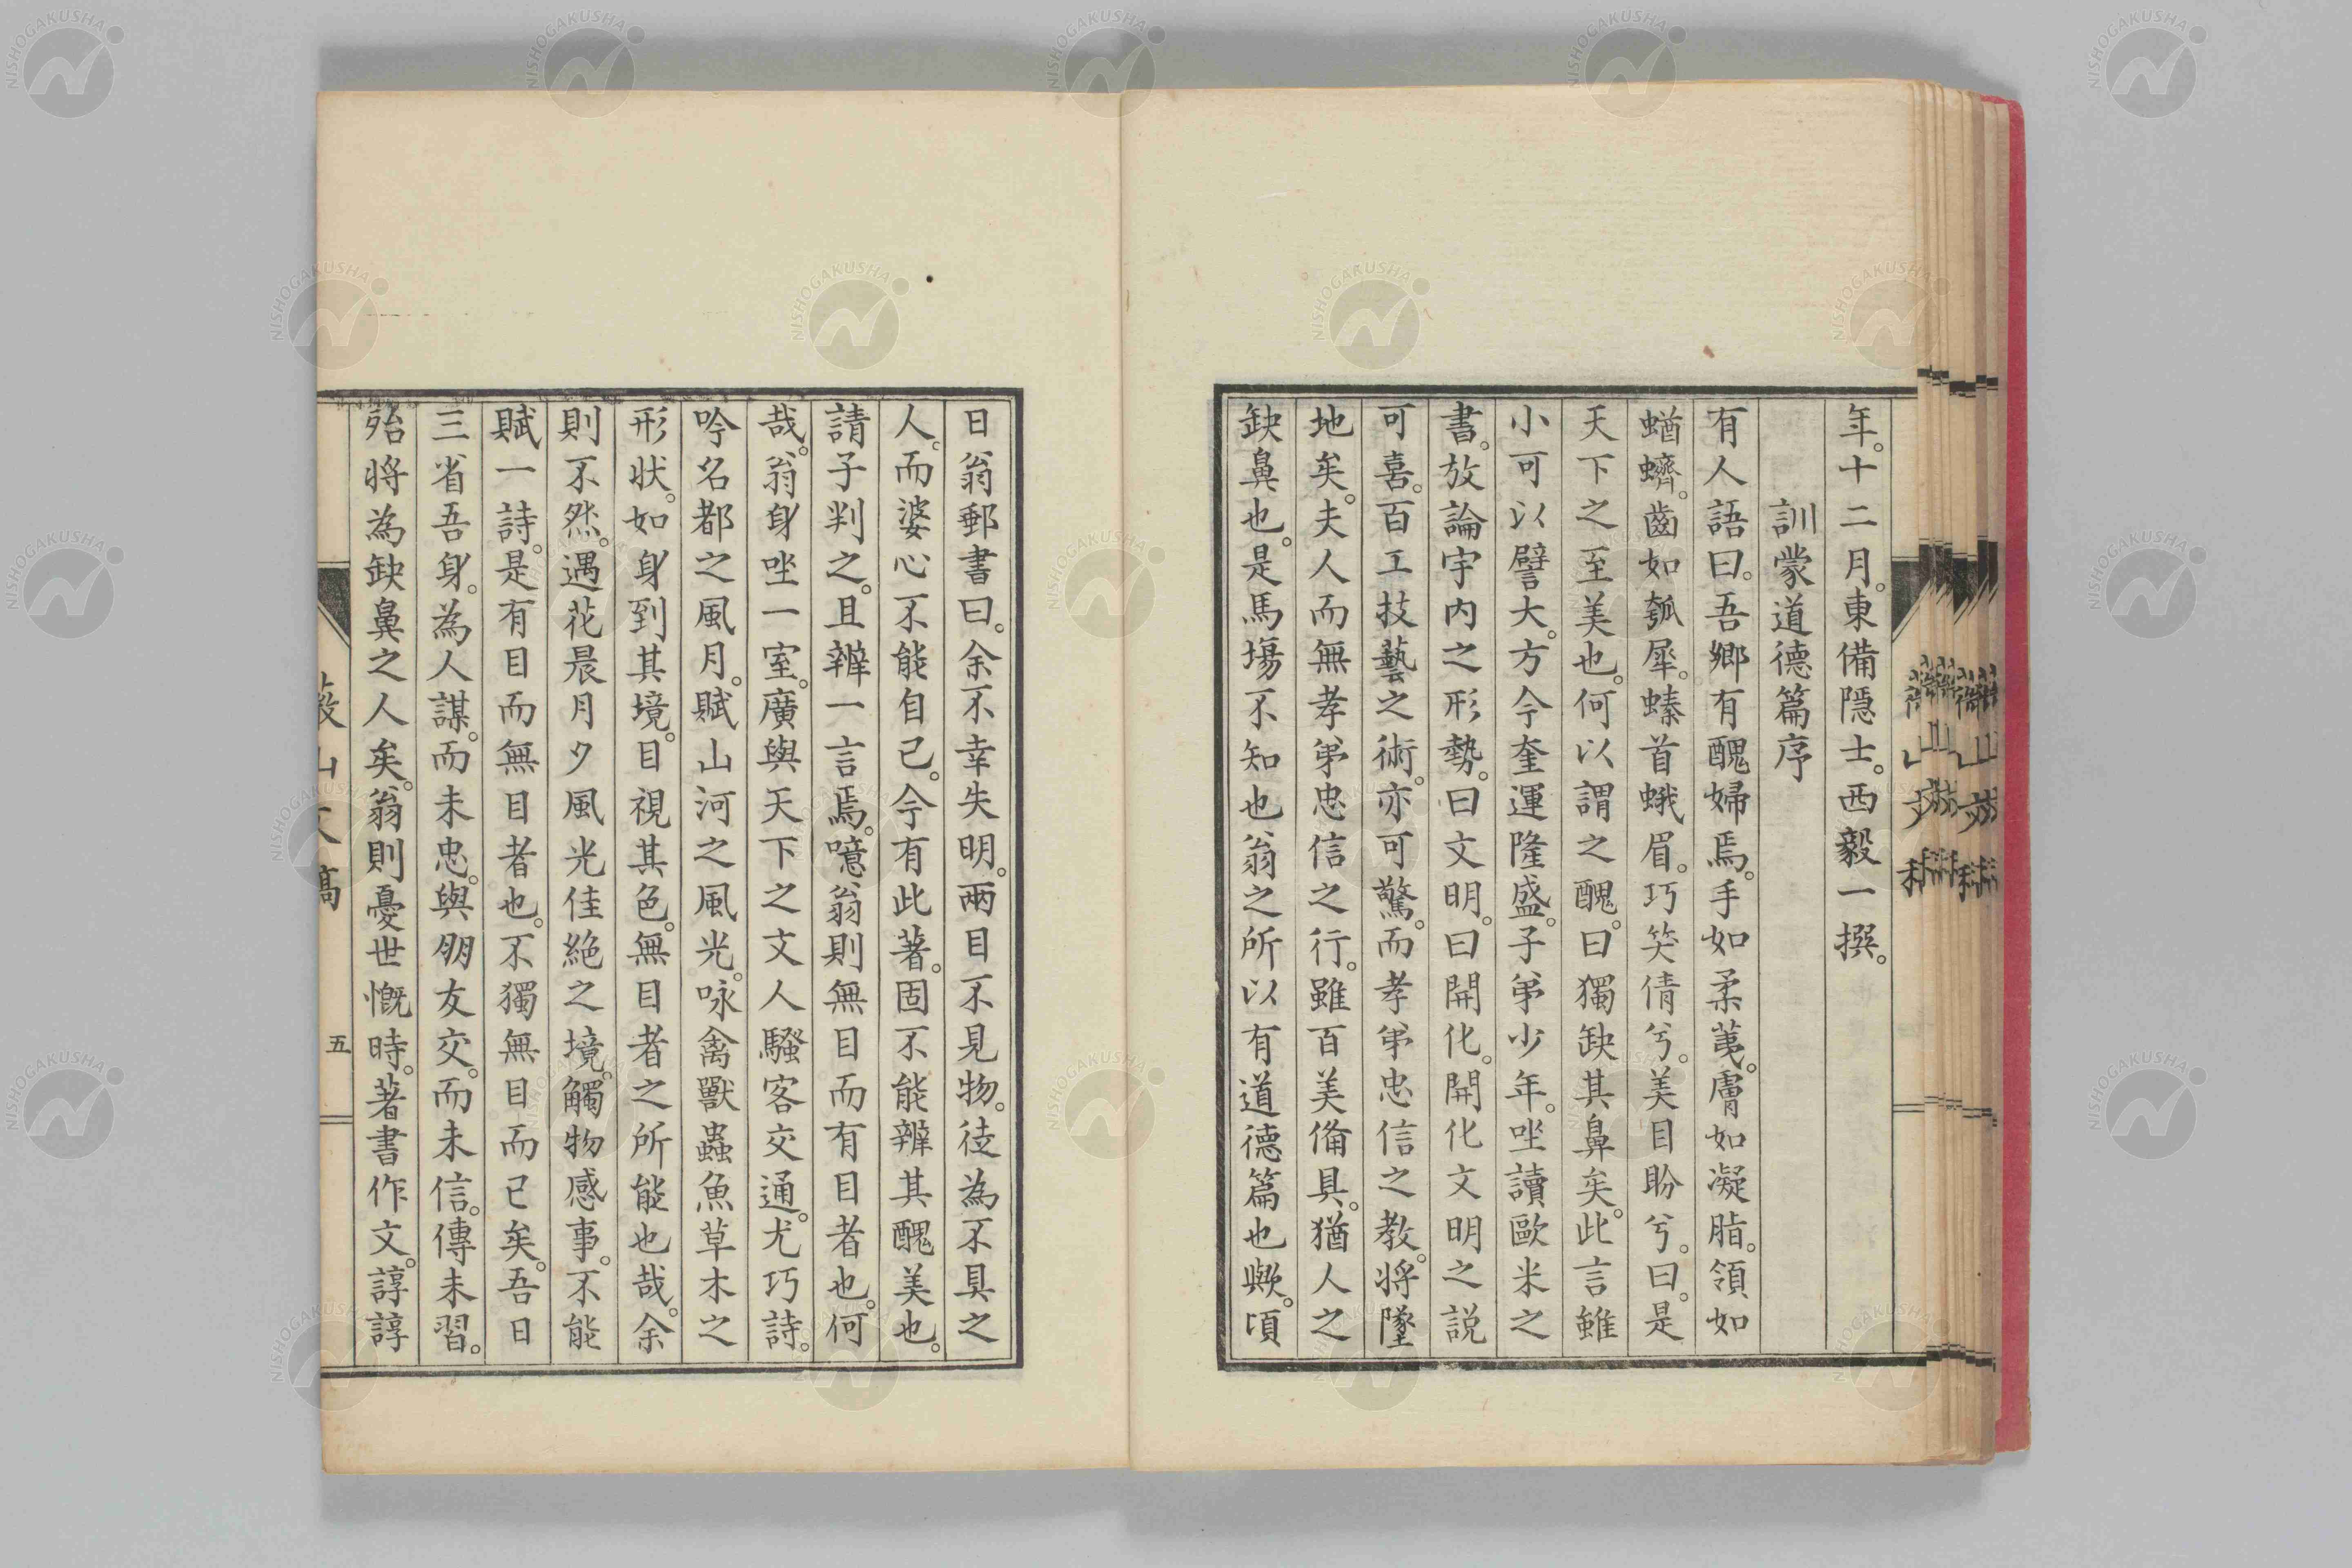 年。十二月。東備隱士。西毅一撰。
訓蒙道德篇序
有人語曰。吾鄉有醜婦焉。手如柔荑。膚如凝脂。領如
蝤蠐。齒如瓠犀。螓首蛾眉。巧笑倩兮。美目盼兮。曰。是
天下之至美也。何以謂之醜。曰獨缺其鼻矣。此言雖
小可以譬大。方今奎運隆盛。子弟少年。坐讀歐米之
書。放論宇內之形勢。曰文明。曰開化。開化文明之說
可喜。百工技藝之術。亦可驚。而孝弟忠信之教。將墜
地矣。夫人而無孝弟忠信之行。雖百美備具。猶人之
缺鼻也。是馬場不知也翁之所以有道德篇也歟。頃
日翁郵書曰。余不幸失明。兩目不見物。徒為不具之
人。而婆心不能自已。今有此著。固不能辨其醜美也。
請子判之。且辨一言焉。噫翁則無目而有目者也。何
哉。翁身坐一室。廣與天下之文人騷客交通。尤巧詩。
吟名都之風月。賦山河之風光。咏禽獸蟲魚草木之
形狀。如身到其境。目視其色。無目者之所能也哉。余
則不然。遇花晨月夕風光佳絕之境。觸物感事。不能
賦一詩。是有目而無目者也。不獨無目而已矣。吾日
三省吾身。為人謀。而未忠。與朋友交。而未信。傳未習。
殆將為缺鼻之人矣。翁則憂世慨時。著書作文。諄諄
薇山文稿
五